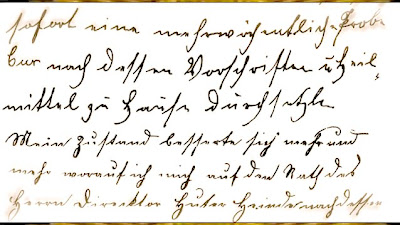 sofort eine mehrwöchentliche Probe
kur nach dessen Vorschriften u Heil-
mittel zu Hause durchsetzte.
Mein Zustand besserte sich mehr und
mehr worauf ich mich auf den Rath des
Herrn Direcktor Huter Heinde nach dessen